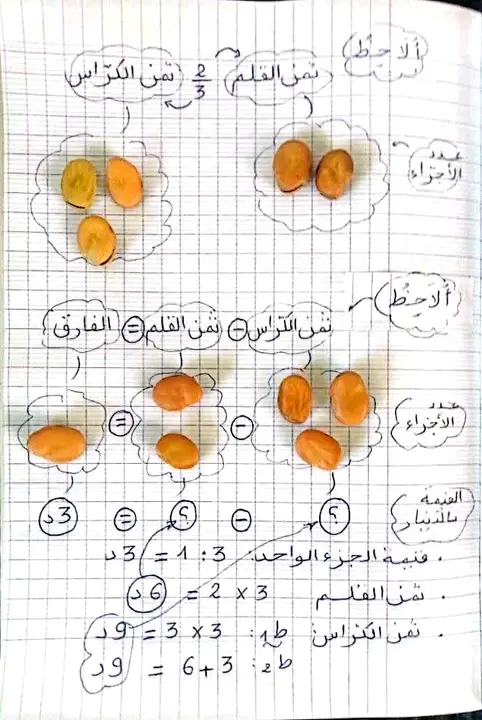 ألاحظ
ثمن القلم 2/3 ثمن الكرّاس
عدد الأجزاء
ألاحظ
ثمن الكرّاس - ثمن القلم = الفارق
عدد الأجزاء
- =
القيمة بالدينار
؟ - ؟ = 3د
. قيمة الجزء الواحد: 3 : 1 = 3د
. ثمن القلم 3 × 2 = 6د
. ثمن الكراس ط1: 3 × 3 = 9د
ط2: 3 + 6 = 9د